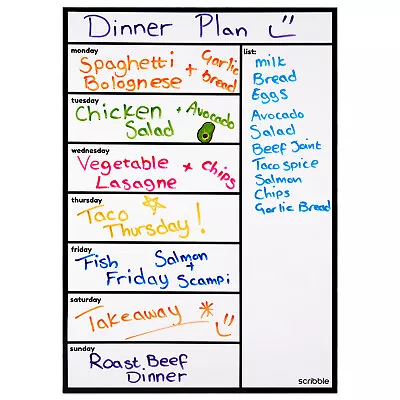 Dinner Plan
monday
Spaghetti + Garlic
Bolognese bread
tuesday
Chicken + Avocado
Salad
wednesday
Vegetable + Chips
Lasagne
thursday
Taco
Thursday!
friday
Fish Salmon
+
Friday Scampi
saturday
Takeaway
sunday
Roast Beef
Dinner
list:
milk
Bread
Eggs
Avocado
Salad
Beef Joint
Taco Spice
Salmon
Chips
Garlic Bread
scribble